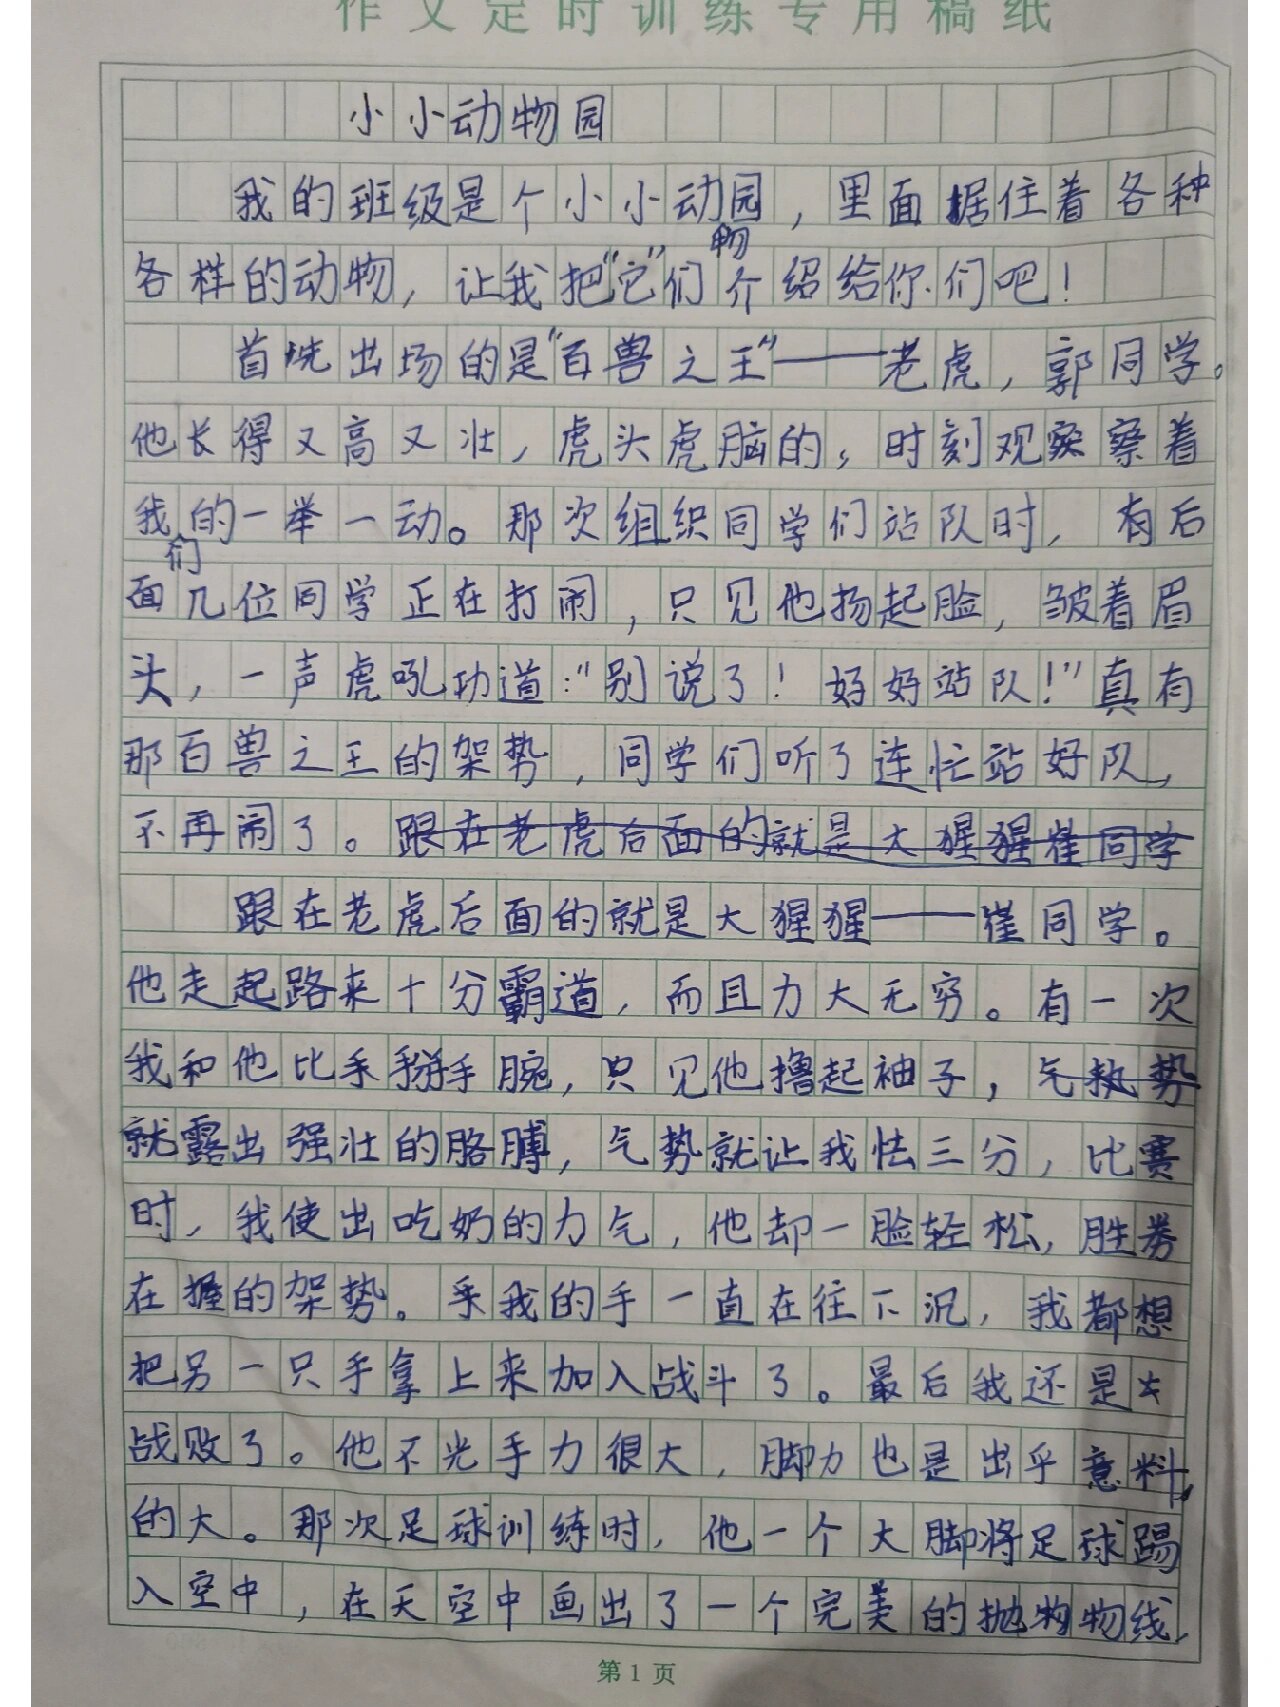 作文定时训练专用稿纸
小小动物园
我的班级是个小小动物园，里面居住着各种
各样的动物，让我把“它”们介绍给你们吧！
首先出场的是“百兽之王”——老虎，郭同学。
他长得又高又壮，虎头虎脑的，时刻观察着
我们的一举一动。那次组织同学们站队时，有后
面几位同学正在打闹，只见他扬起脸，皱着眉
头，一声虎吼功道：“别说了！好好站队！”真有
那百兽之王的架势，同学们听了连忙站好队，
不再闹了。跟在老虎后面的就是大猩猩崔同学
跟在老虎后面的就是大猩猩——崔同学。
他走起路来十分霸道，而且力大无穷。有一次
我和他比手掰手腕，只见他撸起袖子，气执势
就露出强壮的胳膊，气势就让我怯三分，比赛
时，我使出吃奶的力气，他却一脸轻松，胜券
在握的架势。我的手一直在往下沉，我都想
把另一只手拿上来加入战斗了。最后我还是
战败了。他不光手力很大，脚力也是出乎意料
的大。那次足球训练时，他一个大脚将足球踢
入空中，在天空中画出了一个完美的抛物线，
第1页